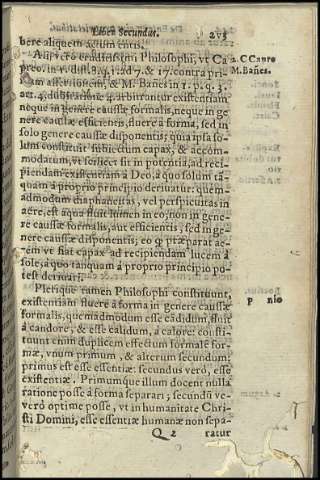 Liber Secundus.
bere aliquem actum entis.
Alij vero eruditissimi Philosophi, vt Ca
preo. in 1. dist. 8. q. 1. ad 7. & 17. contra pri
am assertionem, & M. Bañes in 1. p. q. 3.
art. 4. arbitrantur existentiam
neque in genere causæ formalis, neque in ge
nere causæ efficientis, fluere à forma, sed in
solo genere causæ disponentis; quia ipsa so-
lum constituit subiectum capax, & accom-
modatum, vt scilicet sit in potentia, ad reci-
piendam existentiam à Deo, à quo solùm ta-
quam à proprio principio deriuatur: quem-
admodum diaphaneitas, vel perspicuitas in
aëre, est à qua fluit lumen in eo, non in gene
re causæ formalis, aut efficientis, sed in ge-
nere causæ disponentis; eo q præparat ae-
rem vt fiat capax ad recipiendam lucem à
sole, à quo tanquam à proprio principio po-
test deriuari.
Plerique tamen Philosophi constituunt,
existentiam fluere à forma in genere causæ
formalis, quemadmodum esse cadidum, fluit
à candore, & esse calidum, à calore: consti-
tuunt enim duplicem effectum formale for-
mæ, vnum primum, & alterum secundum:
primus est esse essentiæ: secundus verò, esse
existentiæ. Primumque illum docent nulla
ratione posse à forma separari; secundũ ve-
verò optime posse, vt in humanitate Chri-
sti Domini, esse essentiæ humanæ non sepa-
Q 2 ratur
2. C Capro
M. Bañes.